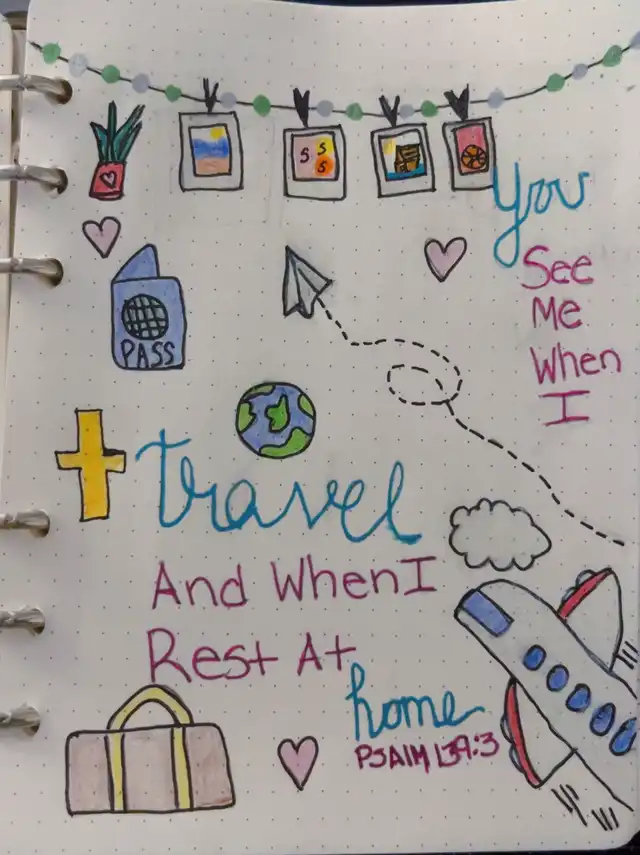 S S
S
you
See
Me
When
I
PASS
travel
And When I
Rest At
home
PSAlM 139:3